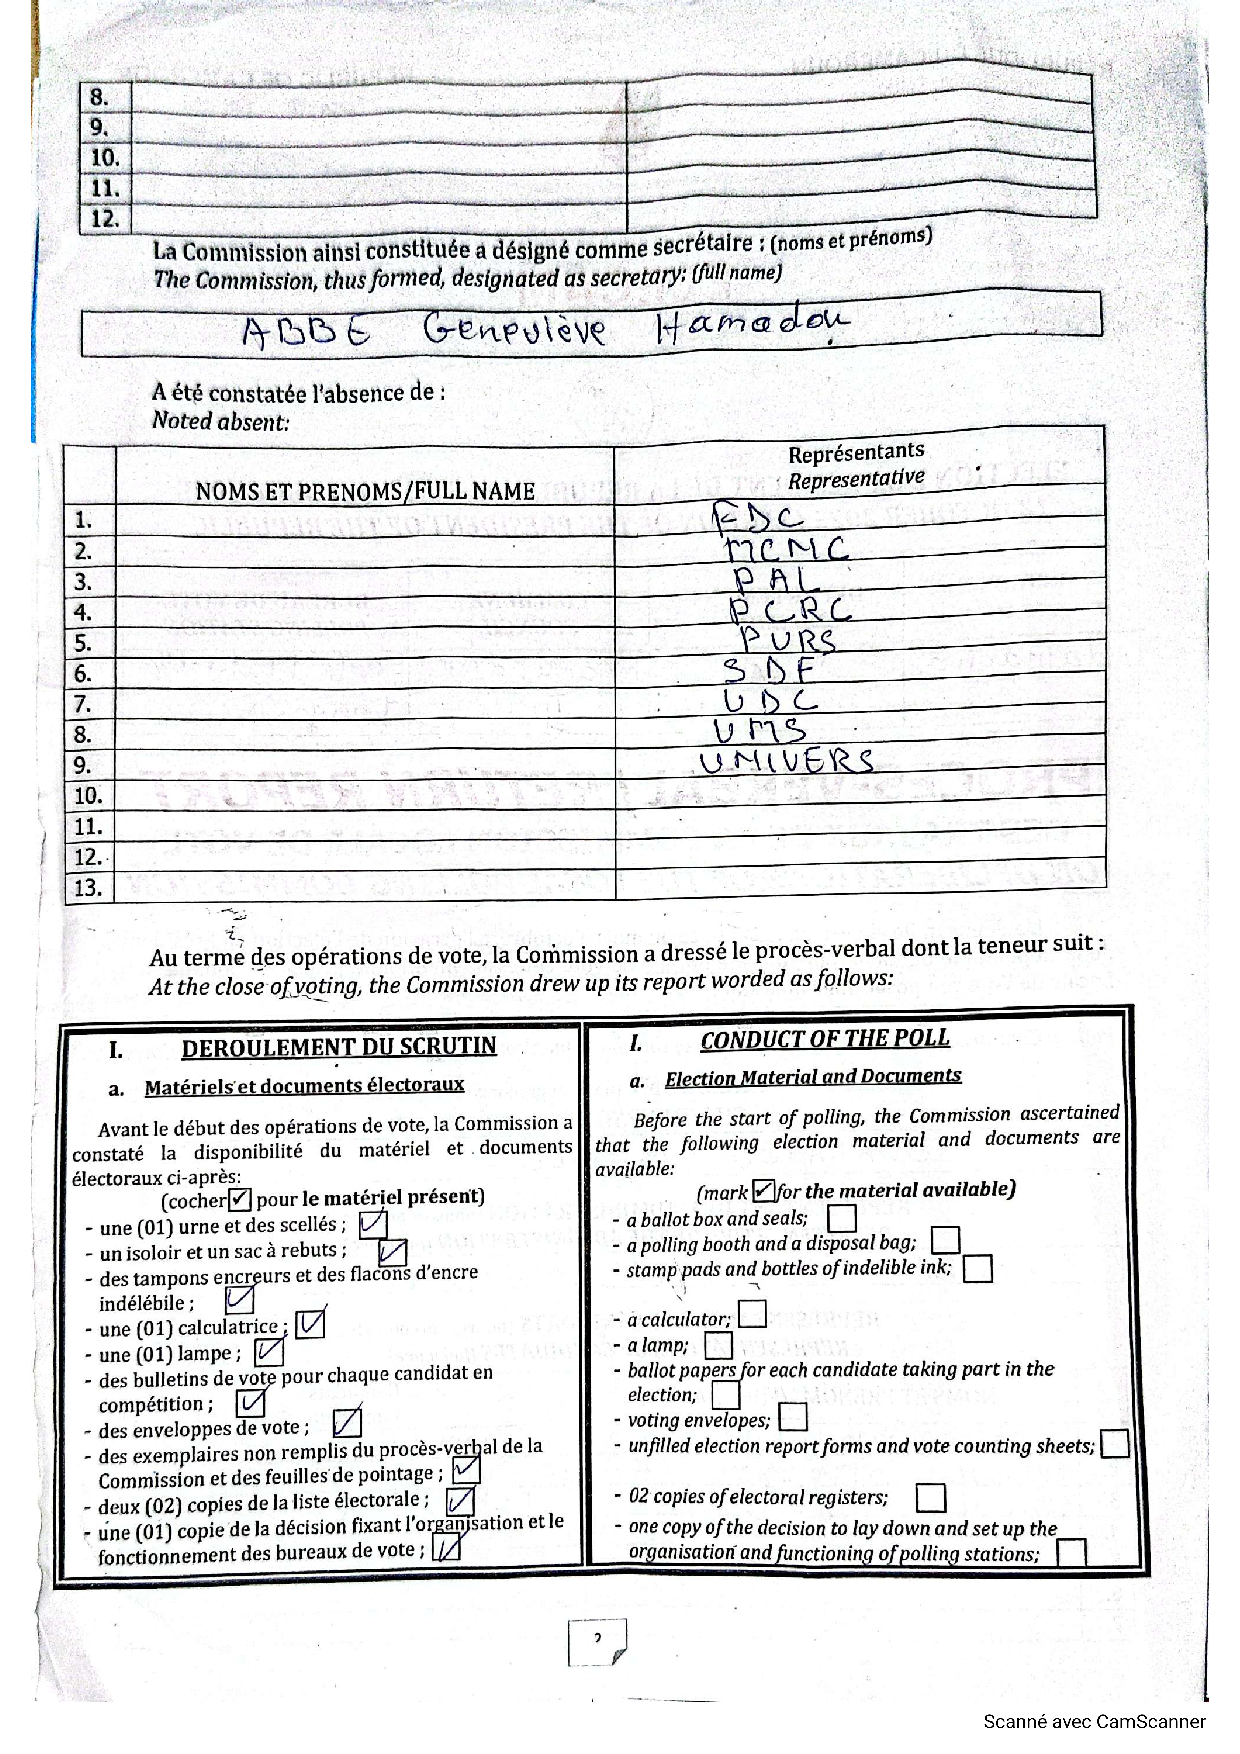 8.
9.
10.
11.
12.
La Commission ainsi constituée a désigné comme secrétaire : (noms et prénoms)
The Commission, thus formed, designated as secretary: (full name)
ABBE Geneviève Hamadou
A été constatée l'absence de :
Noted absent:
NOMS ET PRENOMS/FULL NAME
Représentants
Representative
1. FDC
2. MCNC
3. PAL
4. PCRC
5. PURS
6. SDF
7. UDC
8. UMS
9. UNIVERS
10.
11.
12.
13.
Au terme des opérations de vote, la Commission a dressé le procès-verbal dont la teneur suit :
At the close of voting, the Commission drew up its report worded as follows:
I. DEROULEMENT DU SCRUTIN
a. Matériels et documents électoraux
Avant le début des opérations de vote, la Commission a
constaté la disponibilité du matériel et documents
électoraux ci-après:
(cocher ✓ pour le matériel présent)
- une (01) urne et des scellés ; ✓
- un isoloir et un sac à rebuts ; ✓
- des tampons encreurs et des flacons d'encre
indélébile ; ✓
- une (01) calculatrice ; ✓
- une (01) lampe ; ✓
- des bulletins de vote pour chaque candidat en
compétition ; ✓
- des enveloppes de vote ; ✓
- des exemplaires non remplis du procès-verbal de la
Commission et des feuilles de pointage ; ✓
- deux (02) copies de la liste électorale ; ✓
- une (01) copie de la décision fixant l'organisation et le
fonctionnement des bureaux de vote ; ✓
I. CONDUCT OF THE POLL
a. Election Material and Documents
Before the start of polling, the Commission ascertained
that the following election material and documents are
available:
(mark ✓ for the material available)
- a ballot box and seals;
- a polling booth and a disposal bag;
- stamp pads and bottles of indelible ink;
- a calculator;
- a lamp;
- ballot papers for each candidate taking part in the
election;
- voting envelopes;
- unfilled election report forms and vote counting sheets;
- 02 copies of electoral registers;
- one copy of the decision to lay down and set up the
organisation and functioning of polling stations;
2
Scanné avec CamScanner